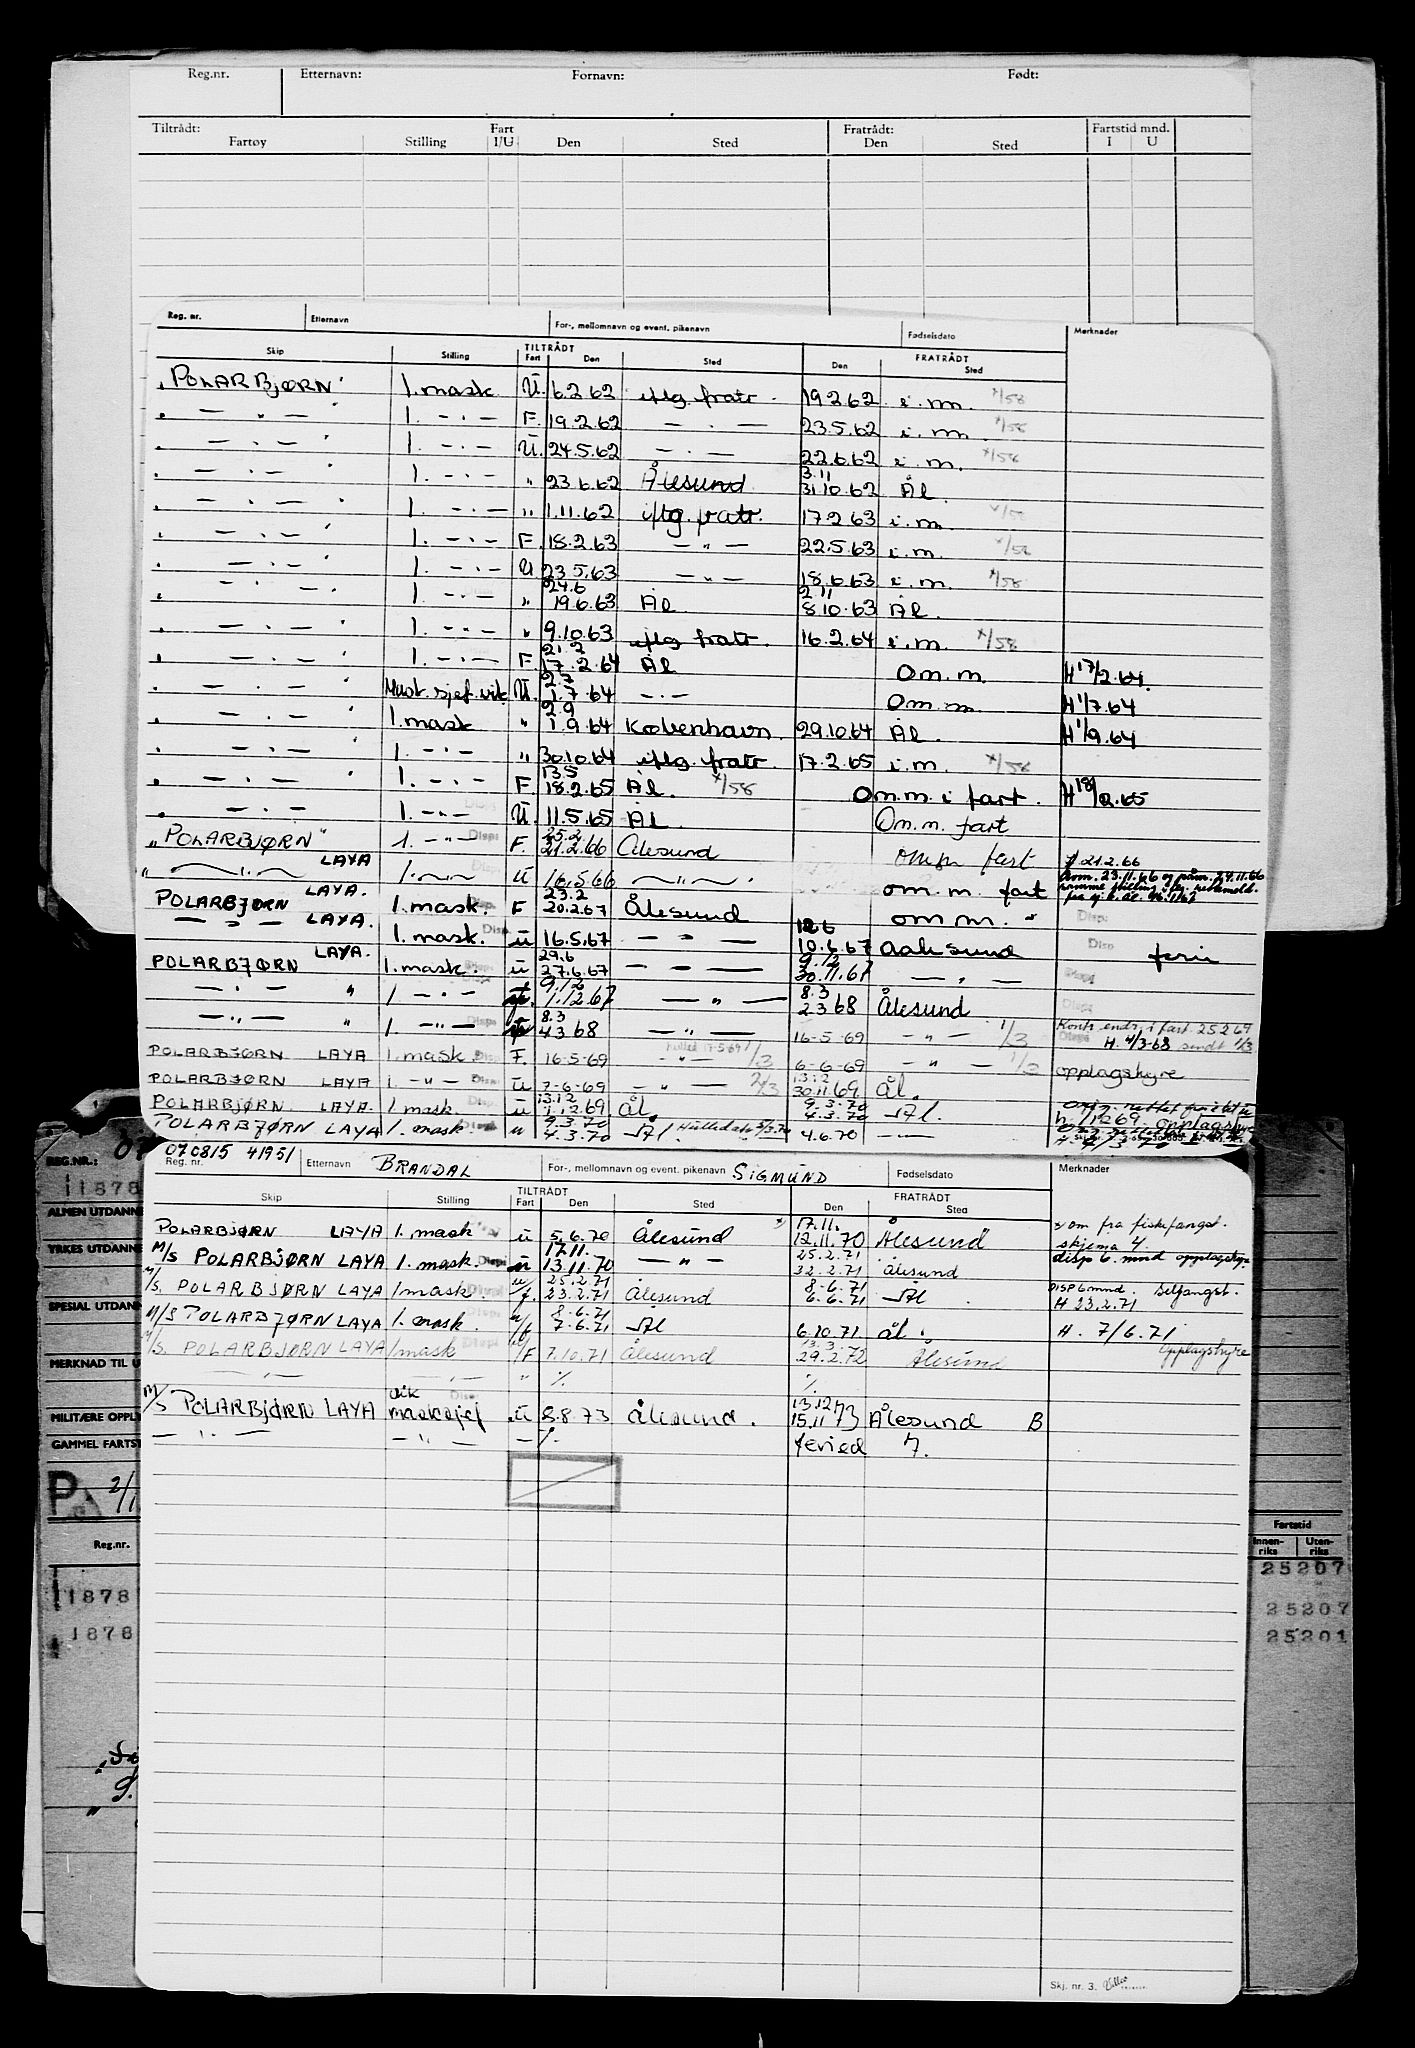 Reg.nr. Etternavn: Fornavn: Født:
Tiltrådt: Fart Fratrådt: Fartstid mnd.
Fartøy Stilling I/U Den Sted Den Sted I U
Reg. nr. Etternavn For-, mellomnavn og event. pikenavn Fødselsdato Merknader
TILTRÅDT FRATRÅDT
Skip Stilling Fart Den Sted Den Sted
"POLARBJØRN" 1. mask U. 6.2.62 iflg. fratr. 19.2.62 i.m. */58
" — " — " 1. — " — F. 19.2.62 — " — 23.5.62 i.m. */58
" — " — " 1. — " — U. 24.5.62 — " — 22.6.62 i.m. */58
3.11
" — " — " 1. — " — " 23.6.62 Ålesund 31.10.62 Ål.
" — " — " 1. — " — " 1.11.62 iflg. fratr. 17.2.63 i.m. */58
" — " — " 1. — " — F. 18.2.63 — " — 22.5.63 i.m. */58
" — " — 1. — " — U 23.5.63 — " — 18.6.63 i.m. */58
24.6 2.11
" — " — " 1. — " — " 19.6.63 Ål. 8.10.63 Ål.
" — " — " 1. — " — " 9.10.63 iflg. fratr. 16.2.64 i.m. */58
21.2
" — " — " 1. — " — F. 17.2.64 Ål Om.m. H 17/2.64.
2.7
" — " — " Mask.sjef.vik. U. 1.7.64 — " — Om.m. H 1/7.64
2.9
" — " — " 1. mask " 1.9.64 København. 29.10.64 Ål. H 1/9.64
" — " — " 1. — " — " 30.10.64 iflg. fratr. 17.2.65 i.m. */58
13.5
" — " — " 1. — " — F. 18.2.65 Ål. */58 Om.m. i fart. H 18/2.65
" — " — " 1. — " — U. 11.5.65 Ål. Om.m. fart
25.2
"POLARBJØRN" 1. — " — Disp: F. 21.2.66 Ålesund om.m fart 21.2.66
" — " — LAYA 1. — " — U 16.5.66 — " — om.m. fart
23.2
POLARBJØRN LAYA. 1. mask. F 20.2.67 Ålesund om m. " Disp:
12.6
— " — LAYA. 1. mask. Disp U 16.5.67 — " — 10.6.67 Aalesund Disp ferie
29.6 9.12
POLARBJØRN LAYA. 1. mask. U 27.6.67 — " — 30.11.67 — " — Disp
9.12 8.3
— " — " 1 — " — 1.12.67 — " — 2.3.68 Ålesund
8.3
— " — " 1. — " — 4.3.68 — " — 16-5-69 — " — 1/3 Kontr. endr. i fart 25269
H. 4/3-68 sendt 1/3
POLARBJØRN LAYA 1. mask. Disp F. 16-5-69 — " — 1/3 6-6-69 — " — 1/3 opplagshyre
13.12
POLARBJØRN LAYA 1. — " — Disp U 7-6-69 — " — 2/3 30.11.69 Ål.
13.12 9.3.70
POLARBJØRN LAYA. 1 mask. U 1.12.69 Ål. 4.3.70 Ål. h. 1/12 69. opplagshyre
9.3.70
POLARBJØRN LAYA 1. mask. U 4.3.70 Ål. 4.6.70 — " — H. 4/3-70
070815 41951
Reg. nr. Etternavn BRANDAL For-, mellomnavn og event. pikenavn SIGMUND Fødselsdato Merknader
TILTRÅDT FRATRÅDT
Skip Stilling Fart Den Sted Den Sted
17.11.
POLARBJØRN LAYA 1. mask U 5.6.70 Ålesund *) 12.11.70 Ålesund *) om fra fiskefangst.
skjema 4
17.11. 25.2.71
M/S POLARBJØRN LAYA 1. mask. Disp U 13.11.70 — " — 22.2.71 Ålesund disp 6. mnd opplagshyre
25.2.71 8-6-71
M/S. POLARBJØRN LAYA 1 mask. U/f. 23.2.71 Ålesund 6-6.71 Ål. DISP 6 mnd. Selfangst.
H 23.2.71
8-6-71
M/S POLARBJØRN LAYA 1. mask. U/f 7-6.71 Ål 6.10.71 Ål. H. 7/6.71
13.3.
M/S. POLARBJØRN LAYA 1 mask U/F 7.10.71 Ålesund 29.2.72 Ålesund Opplagshyre
— " — — " — " ٪ ٪
vik 13.12
M/S POLARBJØRN LAYA masksjef U 8.8.73 Ålesund. 15.11 73 Ålesund B
— " — — " — — ٪ feried 7.
Skj. nr. 3.
REG.NR.: 07
11878
ALMEN UTDANNE
YRKES UTDANNE
SPESIAL UTDANN
MERKNAD TIL U
MILITÆRE OPPL
GAMMEL FARTST
P 2/1
Reg.nr. Fartstid
Innenriks Utenriks
11878 25207
25207
1878 25201